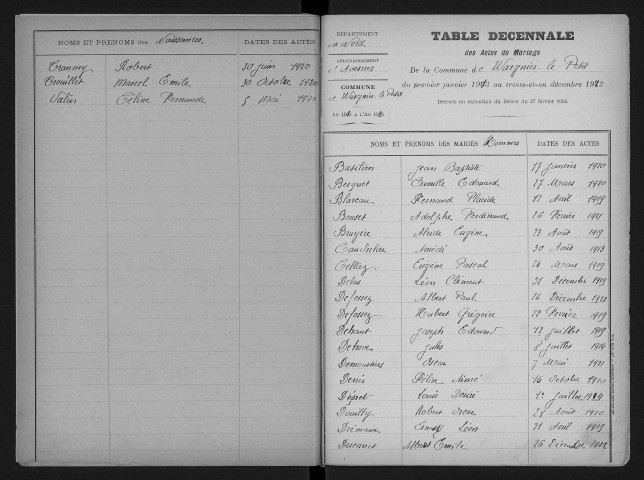 NOMS ET PRÉNOMS des Naissances. DATES DES ACTES
Robert 30 juin 1920
Trouillet Marcel Emile 30 Octobre 1920
Valin Céline Fernande 5 Mai 1920
DÉPARTEMENT
du Nord
ARRONDISSEMENT
d'Avesnes
COMMUNE
de Wargnies-le-Petit
TABLE DECENNALE
des Actes de Mariage
De la Commune de Wargnies-le-Petit
du premier janvier 1913 au trente-et-un décembre 1922
Dressée en exécution du Décret du
NOMS ET PRÉNOMS DES MARIÉS Hommes DATES DES ACTES
Basilien Jean Baptiste 17 Janvier 1920
Berquet Camille Edouard 27 Mars 1920
Blareau Fernand Placide 12 Avril 1919
Adolphe Ferdinand 26 Février 1921
Bruyère Alcide Eugène 23 Août 1919
Caudrelier Amédé 30 Août 1913
Eugène Pascal 24 Mars 1919
Léon Clément 31 Décembre 1919
Defossez Albert Paul 26 Décembre 1921
Defossez Hubert Grégoire 22 Février 1919
Dehaut Joseph Edouard 12 Juillet 1919
Dehove Jules 8 Juillet 1914
Demoustiers Oscar 7 Mai 1921
Denis Aimé 16 Octobre 1920
Louis Désiré Juillet
Douilly Robert Oscar 28 Août 1920
Ernest Léon Avril 1913
Albert Emile 26 Décembre 1922